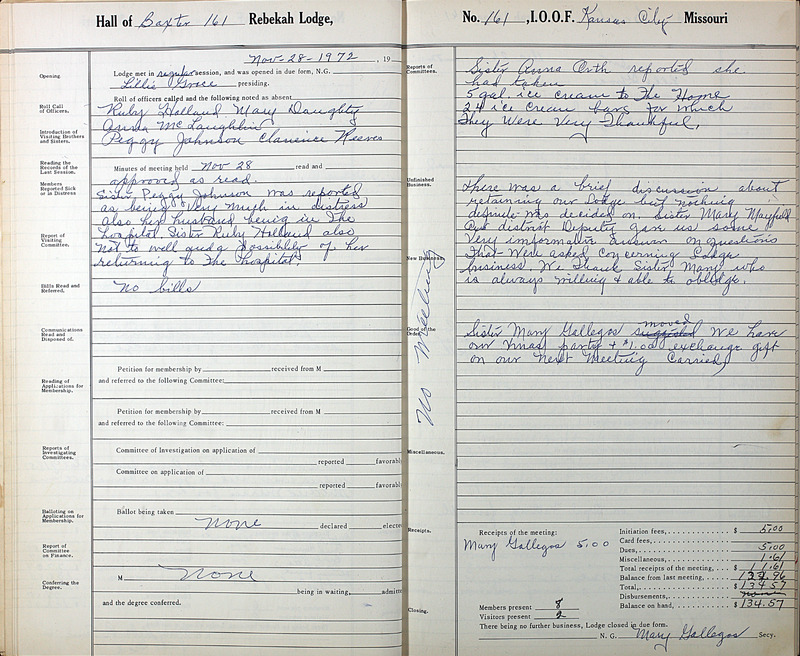 Hall of Baxter 161 Rebekah Lodge,
Nov-28-1972, 19
Opening
Lodge met in regular session, and was opened in due form, N.G.
Lillie Grose presiding.
Roll Call of Officers.
Roll of officers called and the following noted as absent
Ruby Holland Mary Daughty
Anna McLaughlin
Introduction of Visiting Brothers and Sisters.
Peggy Johnson Clarence Reeves
Reading the Records of the Last Session.
Minutes of meeting held Nov 28 read and
approved as read.
Members Reported Sick or in Distress
Sister Peggy Johnson was reported
as being very much in distress
also her husband being in The
hospital Sister Ruby Holland also
Report of Visiting Committee.
not to well and a possibley of her
returning to The hospital.
Bills Read and Referred.
No bills
Communications Read and Disposed of.
Petition for membership by received from M
Reading of Applications for Membership.
and referred to the following Committee:
Petition for membership by received from M
and referred to the following Committee:
Reports of Investigating Committees.
Committee of Investigation on application of
reported favorabl
Committee on application of
reported favorabl
Balloting on Applications for Membership.
Ballot being taken
none declared electe
Report of Committee on Finance.
Conferring the Degree.
M none
being in waiting, admitt
and the degree conferred.
No. 161, I.O.O.F. Kansas City Missouri
Reports of Committees.
Sister Anna Orth reported she
had taken
5 gal. ice cream to The Home
24 ice cream bars for which
They Were Very Thankful.
Unfinished Business.
There was a brief discussion about
retaining our Lodge but nothing
definite was decided on. Sister Mary Mayfield
Our district Deputy gave us some
Very imformative answer on questions
New Business.
That Were asked concerning Lodge
business. We Thank Sister Mary who
is always willing & able to oblidge.
No Meeting
Good of the Order.
Sister Mary Gallegos suggested moved we have
our Xmas party + $1.00 exchange gift
on our next Meeting Carried
Miscellaneous.
Receipts.
Receipts of the meeting:
Mary Gallegos 5.00
Initiation fees, $ 5.00
Card fees,
Dues, 5.00
Miscellaneous, 1.61
Total receipts of the meeting, $ 11.61
Balance from last meeting, 122.96
Total, $ 134.57
Disbursements, none
Balance on hand, $ 134.57
Members present 8
Visitors present 2
Closing.
There being no further business, Lodge closed in due form.
N. G. Mary Gallegos Secy.